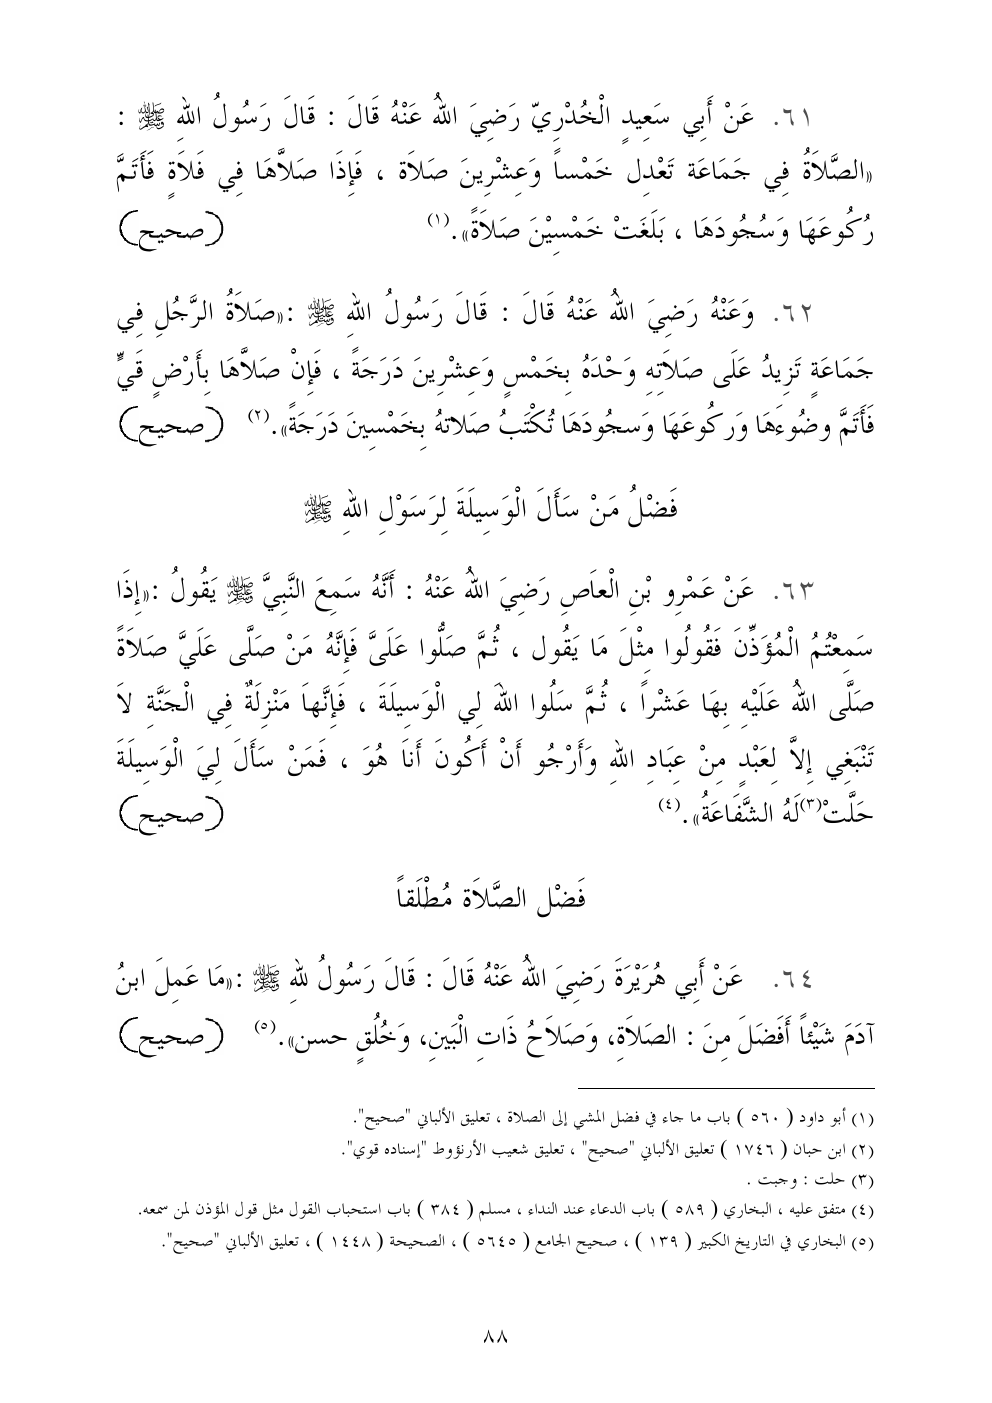 ٦١. عَنْ أَبِي سَعِيدٍ الْخُدْرِيّ رَضِيَ اللهُ عَنْهُ قَالَ : قَالَ رَسُولُ اللهِ ﷺ :
«الصَّلاَةُ فِي جَمَاعَة تَعْدِل خَمْساً وَعِشْرِينَ صَلاَة ، فَإِذَا صَلاَّهَا فِي فَلاَةٍ فَأَتَمَّ
رُكُوعَهَا وَسُجُودَهَا ، بَلَغَتْ خَمْسِيْنَ صَلاَةً».(١) (صحيح)
٦٢. وَعَنْهُ رَضِيَ اللهُ عَنْهُ قَالَ : قَالَ رَسُولُ اللهِ ﷺ :«صَلاَةُ الرَّجُلِ فِي
جَمَاعَةٍ تَزِيدُ عَلَى صَلاَتِهِ وَحْدَهُ بِخَمْسٍ وَعِشْرِينَ دَرَجَةً ، فَإِنْ صَلاَّهَا بِأَرْضٍ قَيٍّ
فَأَتَمَّ وضُوءَهَا وَركُوعَهَا وَسجُودَهَا تُكْتَبُ صَلاتهُ بِخَمْسِينَ دَرَجَةً».(٢) (صحيح)
فَضْلُ مَنْ سَأَلَ الْوَسِيلَةَ لِرَسَوْلِ اللهِ ﷺ
٦٣. عَنْ عَمْرِو بْنِ الْعَاصِ رَضِيَ اللهُ عَنْهُ : أَنَّهُ سَمِعَ النَّبِيَّ ﷺ يَقُولُ :«إِذَا
سَمِعْتُمُ الْمُؤَذِّنَ فَقُولُوا مِثْلَ مَا يَقُول ، ثُمَّ صَلُّوا عَلَىَّ فَإِنَّهُ مَنْ صَلَّى عَلَيَّ صَلاَةً
صَلَّى اللهُ عَلَيْهِ بِهَا عَشْراً ، ثُمَّ سَلُوا اللهَ لِي الْوَسِيلَةَ ، فَإِنَّهاَ مَنْزِلَةٌ فِي الْجَنَّةِ لاَ
تَنْبَغِي إِلاَّ لِعَبْدٍ مِنْ عِبَادِ اللهِ وَأَرْجُو أَنْ أَكُونَ أَناَ هُوَ ، فَمَنْ سَأَلَ لِيَ الْوَسِيلَةَ
حَلَّتْ(٣)لَهُ الشَّفَاعَةُ».(٤) (صحيح)
فَضْل الصَّلاَة مُطْلَقاً
٦٤. عَنْ أَبِي هُرَيْرَةَ رَضِيَ اللهُ عَنْهُ قَالَ : قَالَ رَسُولُ للهِ ﷺ :«مَا عَمِلَ ابنُ
آدَمَ شَيْئاً أَفَضَلَ مِنَ : الصَلاَةِ، وَصَلاَحُ ذَاتِ الْبَينِ، وَخُلُقٍ حسن».(٥) (صحيح)
(١) أبو داود ( ٥٦٠ ) باب ما جاء في فضل المشي إلى الصلاة ، تعليق الألباني "صحيح".
(٢) ابن حبان ( ١٧٤٦ ) تعليق الألباني "صحيح" ، تعليق شعيب الأرنؤوط "إسناده قوي".
(٣) حلت : وجبت .
(٤) متفق عليه ، البخاري ( ٥٨٩ ) باب الدعاء عند النداء ، مسلم ( ٣٨٤ ) باب استحباب القول مثل قول المؤذن لمن سمعه.
(٥) البخاري في التاريخ الكبير ( ١٣٩ ) ، صحيح الجامع ( ٥٦٤٥ ) ، الصحيحة ( ١٤٤٨ ) ، تعليق الألباني "صحيح".
٨٨